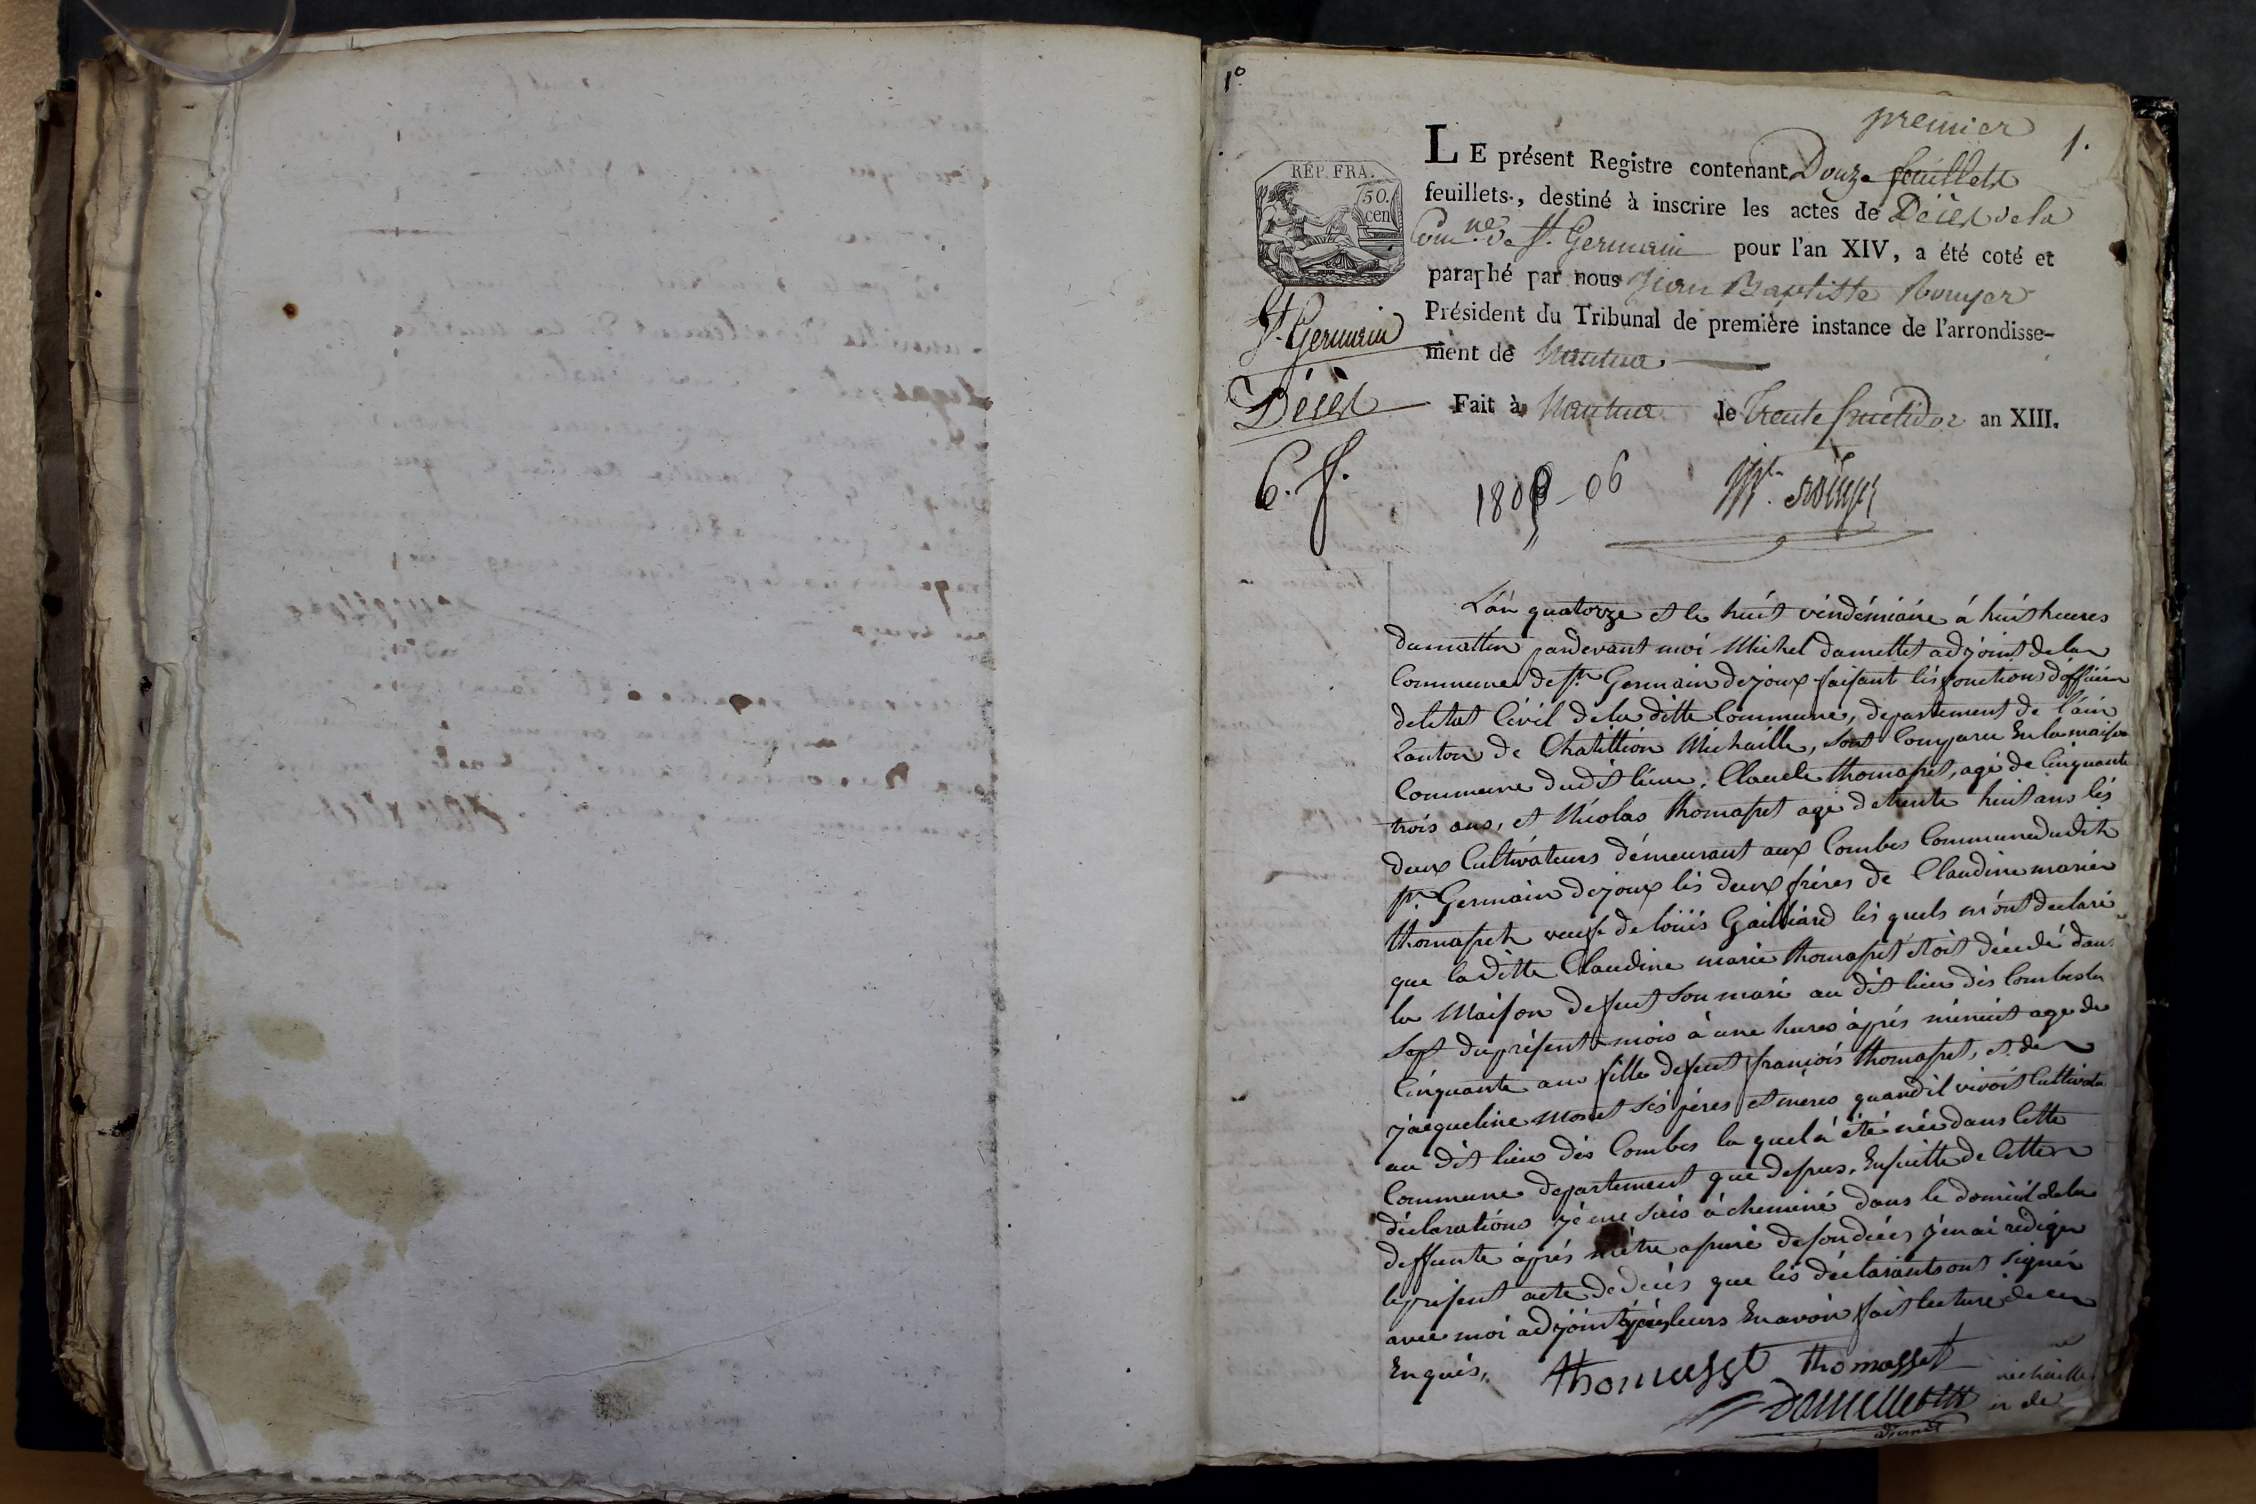 1º
premier
1.
RÉP. FRA.
50.
cen
LE présent Registre contenant Douze feuillets
feuillets., destiné à inscrire les actes de Décès de la
Comne de St. Germain pour l'an XIV, a été coté et
paraphé par nous Jean Baptiste Rouyer
Président du Tribunal de première instance de l'arrondisse-
ment de Nantua
St. Germain
Décès
Fait à Nantua le Trente fructidor an XIII.
6. f.
1805-06
L'an quatorze et le huit vendémiaire á huit heures
du mattin pardevant moi Michel damettet adjoint de la
Commune de St Germain dejoux faisant lés fonctions d'officier
de létat Civil de la ditte Commune, departement de l'ain
Canton de Chatillion Michaille, sont Comparu En la maison
Commune dudit lieu, Claude thomasset, agé de Cinquante
trois ans, et Nicolas thomasset agé de trente huit ans lés
deux Cultivateurs démeurant aux Combes Commune dudit
St Germain dejoux lés deux fréres de Claudine marie
thomasset veuse de loüis Gailliard lés quels m'ont declaré
que la ditte Claudine marie thomasset étoit décédé dans
la Maison de feut son mari au dit lieu dés Combes le
sept du présent mois à une heures àprés minuit agé de
Cinquante ans fille de feut françois thomasset, et de
jacqueline Monet sés péres et méres quand il vivoit Cultivateur
au dit lieu dés Combes la quel à été née dans Cette
Commune departement que desus. Ensuitte de Cette
déclarations jé me suis ácheminé dans le domicil de la
deffunte áprés m'étre assuré de son décés j'en ai redigér
le présent acte de décés que lés déclarants ont signér
avec moi adjoint áprés leurs En avoir fait lecture de ce
Enquis,
thomasset thomasset
michaille
in de
Damettet
adjoint